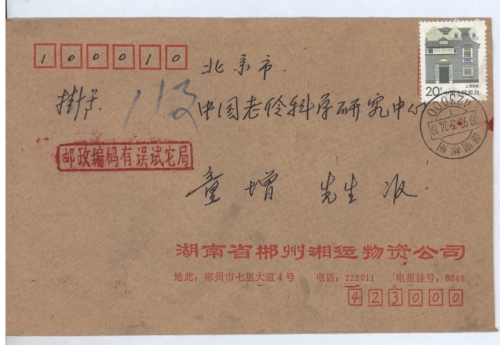 100010
北京市
挂号
113
中国老令科学研究中心
邮政编码有误试宅局
童增 先生 收
湖南省郴州湘运物资公司
地址:郴州市七里大道4号 电话:222911 电报挂号:0648
423000
20分